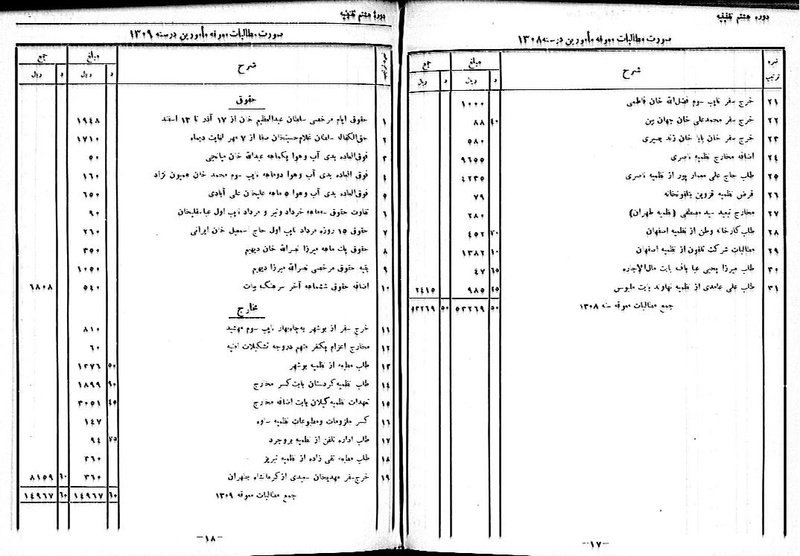 دوره هشتم تقنینیه
صورت مطالبات معوقه مأمورین در سنه ۱۳۰۸
نمره ترتیب شرح مبلغ جمع
ریال د ریال د
۲۱ خرج سفر نایب سوم فضل‌الله خان فاطمی ۱۰۰۰
۲۲ خرج سفر محمدعلی خان جهان بین ۸۸ ۴۰
۲۳ خرج سفر خان بابا خان زند بصیری ۵۸۰
۲۴ اضافه مخارج نظمیه ناصری ۹۶۵۵
۲۵ طلب حاج علی معمار پور از نظمیه ناصری ۴۲۳۵
۲۶ قرض نظمیه قزوین بتلفونخانه ۷۹
۲۷ مخارج تبعید سید مصطفی (نظمیه طهران) ۲۸۰
۲۸ طلب کارخانه وطن از نظمیه اصفهان ۴۵۲ ۷۰
۲۹ مطالبات شرکت تلفون از نظمیه اصفهان ۱۳۸۲ ۱۰
۳۰ طلب میرزا یحیی عبا باف بابت مال‌الاجاره ۴۷ ۶۵
۳۱ طلب علی عامدی از نظمیه نهاوند بابت ملبوس ۹۸۵ ۶۵ ۲۴۱۵
جمع مطالبات معوقه سنه ۱۳۰۸ ۵۳۲۶۹ ۵۰ ۵۳۲۶۹ ۵۰
-۱۷-
دورهٔ هشتم تقنینیه
صورت مطالبات معوقه مأمورین در سنه ۱۳۰۹
شرح مبلغ جمع
ریال د ریال د
حقوق
۱ حقوق ایام مرخصی سلطان عبدالعظیم خان از ۱۷ آذر تا ۱۳ اسفند ۱۹۴۸
۲ حق‌الکفاله سلطان غلامحسینخان صفا از ۷ مهر لغایت دیماه ۱۷۱۰
۳ فوق‌العاده بدی آب وهوا یکماهه عبدالله خان میانجی ۵۰
۴ فوق العاده بدی آب وهوا دوماهه نایب سوم محمد خان همیون نژاد ۱۶۰
۵ فوق‌العاده بدی آب وهوا ۵ ماهه علیخان علی آبادی ۶۵۰
۶ تفاوت حقوق سه‌ماهه خرداد وتیر و مرداد نایب اول عباسقلیخان ۹۰
۷ حقوق ۱۵ روزه مرداد نایب اول حاج اسمعیل خان ایرانی ۲۶۰
۸ حقوق یک ماهه میرزا نصرالله خان دیهیم ۳۵۰
۹ بقیه حقوق مرخصی نصرالله میرزا دیهیم ۱۰۵۰
۱۰ اضافه حقوق ششماهه آخر سرهنگ بیات ۵۴۰ ۶۸۰۸
مخارج
۱۱ خرج سفر از بوشهر به‌چاه‌بهار نایب سوم مهشید ۸۱۰
۱۲ مخارج اعزام یکنفر متهم دروجه تشکیلات امنیه ۶۰
۱۳ طلب مطبعه از نظمیه بوشهر ۱۲۷۶ ۵۰
۱۴ طلب نظمیه کردستان بابت کسر مخارج ۱۸۹۹ ۹۰
۱۵ تعهدات نظمیه گیلان بابت اضافه مخارج ۳۰۵۱ ۴۵
۱۶ کسر ملزومات ومطبوعات نظمیه ساوه ۱۴۷
۱۷ طلب اداره تلفن از نظمیه بروجرد ۹۴ ۷۵
۱۸ طلب مطبعه تقی زاده از نظمیه تبریز ۳۶۰
۱۹ خرج سفر مهدیخان سعیدی از کرمانشاه بطهران ۳۶۰ ۸۱۵۹ ۶۰
جمع مطالبات معوقه ۱۳۰۹ ۱۴۹۶۷ ۶۰ ۱۴۹۶۷ ۶۰
-۱۸-